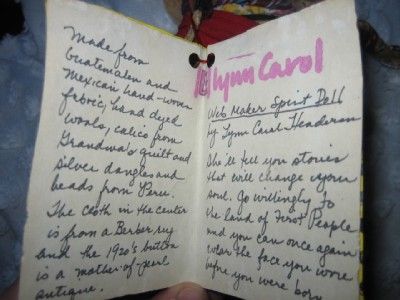 Made from
Guatemalan and
Mexican hand-woven
fabric, hand dyed
wools, calico from
Grandma's quilt and
silver dangles and
beads from Peru.
The cloth in the center
is from a Berber rug
and the 1920's button
is a mother-of-pearl
antique.
Lynn Carol
Web Maker Spirit Doll
by Lynn Carol Henderson
She'll tell you stories
that will change your
soul. Go willingly to
the land of First People
and you can once again
wear the face you wore
before you were born.